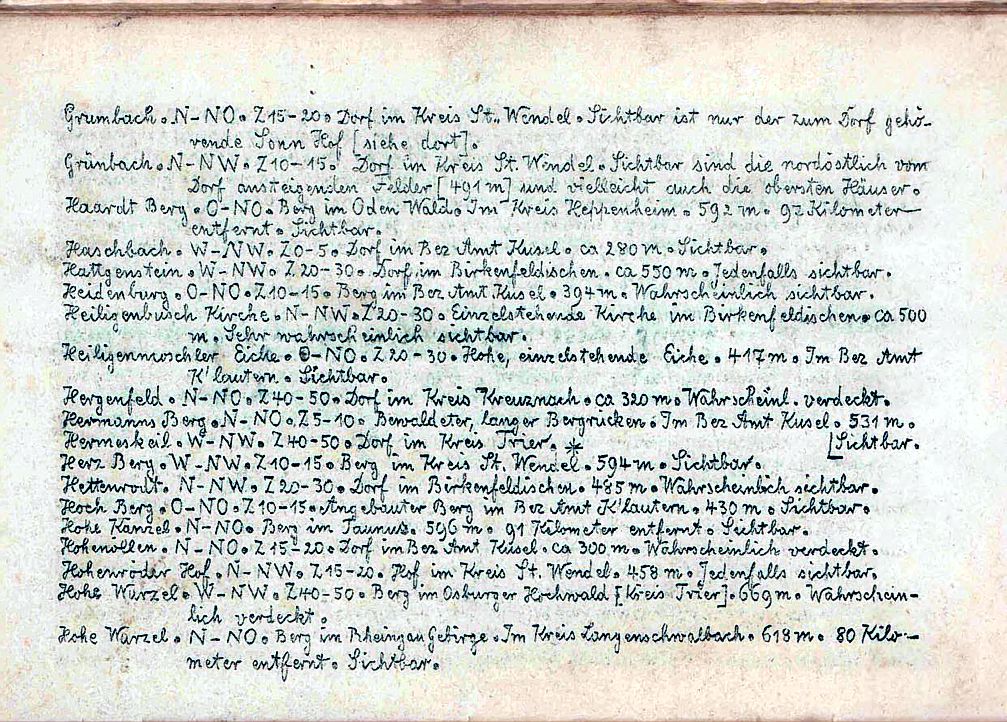 Grumbach. N-NO. Z 15-20. Dorf im Kreis St. Wendel. Sichtbar ist nur der zum Dorf gehö-
rende Sonn Hof [siehe dort].
Grünbach. N-NW. Z 10-15. Dorf im Kreis St. Wendel. Sichtbar sind die nordöstlich vom
Dorf ansteigenden Felder [491 m] und vielleicht auch die obersten Häuser.
Haardt Berg. O-NO. Berg im Oden Wald. Im Kreis Heppenheim. 592 m. 97 Kilometer
entfernt. Sichtbar.
Haschbach. W-NW. Z 0-5. Dorf im Bez Amt Kusel. ca 280 m. Sichtbar.
Hattgenstein. W-NW. Z 20-30. Dorf im Birkenfeldischen. ca 550 m. Jedenfalls sichtbar.
Heidenburg. O-NO. Z 10-15. Berg im Bez Amt Kusel. 394 m. Wahrscheinlich sichtbar.
Heiligenbusch Kirche. N-NW. Z 20-30. Einzelstehende Kirche im Birkenfeldischen. ca 500
m. Sehr wahrscheinlich sichtbar.
Heiligenmoschler Eiche. O-NO. Z 20-30. Hohe, einzelstehende Eiche. 417 m. Im Bez Amt
K'lautern. Sichtbar.
Hergenfeld. N-NO. Z 40-50. Dorf im Kreis Kreuznach. ca 320 m. Wahrscheinl. verdeckt.
Hermanns Berg. N-NO. Z 5-10. Bewaldeter, langer Bergrücken. Im Bez Amt Kusel. 531 m.
Hermeskeil. W-NW. Z 40-50. Dorf im Kreis Trier. * [Sichtbar.
Herz Berg. W-NW. Z 10-15. Berg im Kreis St. Wendel. 594 m. Sichtbar.
Hettenrodt. N-NW. Z 20-30. Dorf im Birkenfeldischen. 485 m. Wahrscheinlich sichtbar.
Hoch Berg. O-NO. Z 10-15. Angebauter Berg im Bez Amt K'lautern. 430 m. Sichtbar.
Hohe Kanzel. N-NO. Berg im Taunus. 596 m. 91 Kilometer entfernt. Sichtbar.
Hohenöllen. N-NO. Z 15-20. Dorf im Bez Amt Kusel. ca 300 m. Wahrscheinlich verdeckt.
Hohenröder Hof. N-NW. Z 15-20. Hof im Kreis St. Wendel. 458 m. Jedenfalls sichtbar.
Hohe Wurzel. W-NW. Z 40-50. Berg im Osburger Hochwald [Kreis Trier]. 669 m. Wahrschein-
lich verdeckt.
Hohe Wurzel. N-NO. Berg im Rheingau Gebirge. Im Kreis Langenschwalbach. 618 m. 80 Kilo-
meter entfernt. Sichtbar.